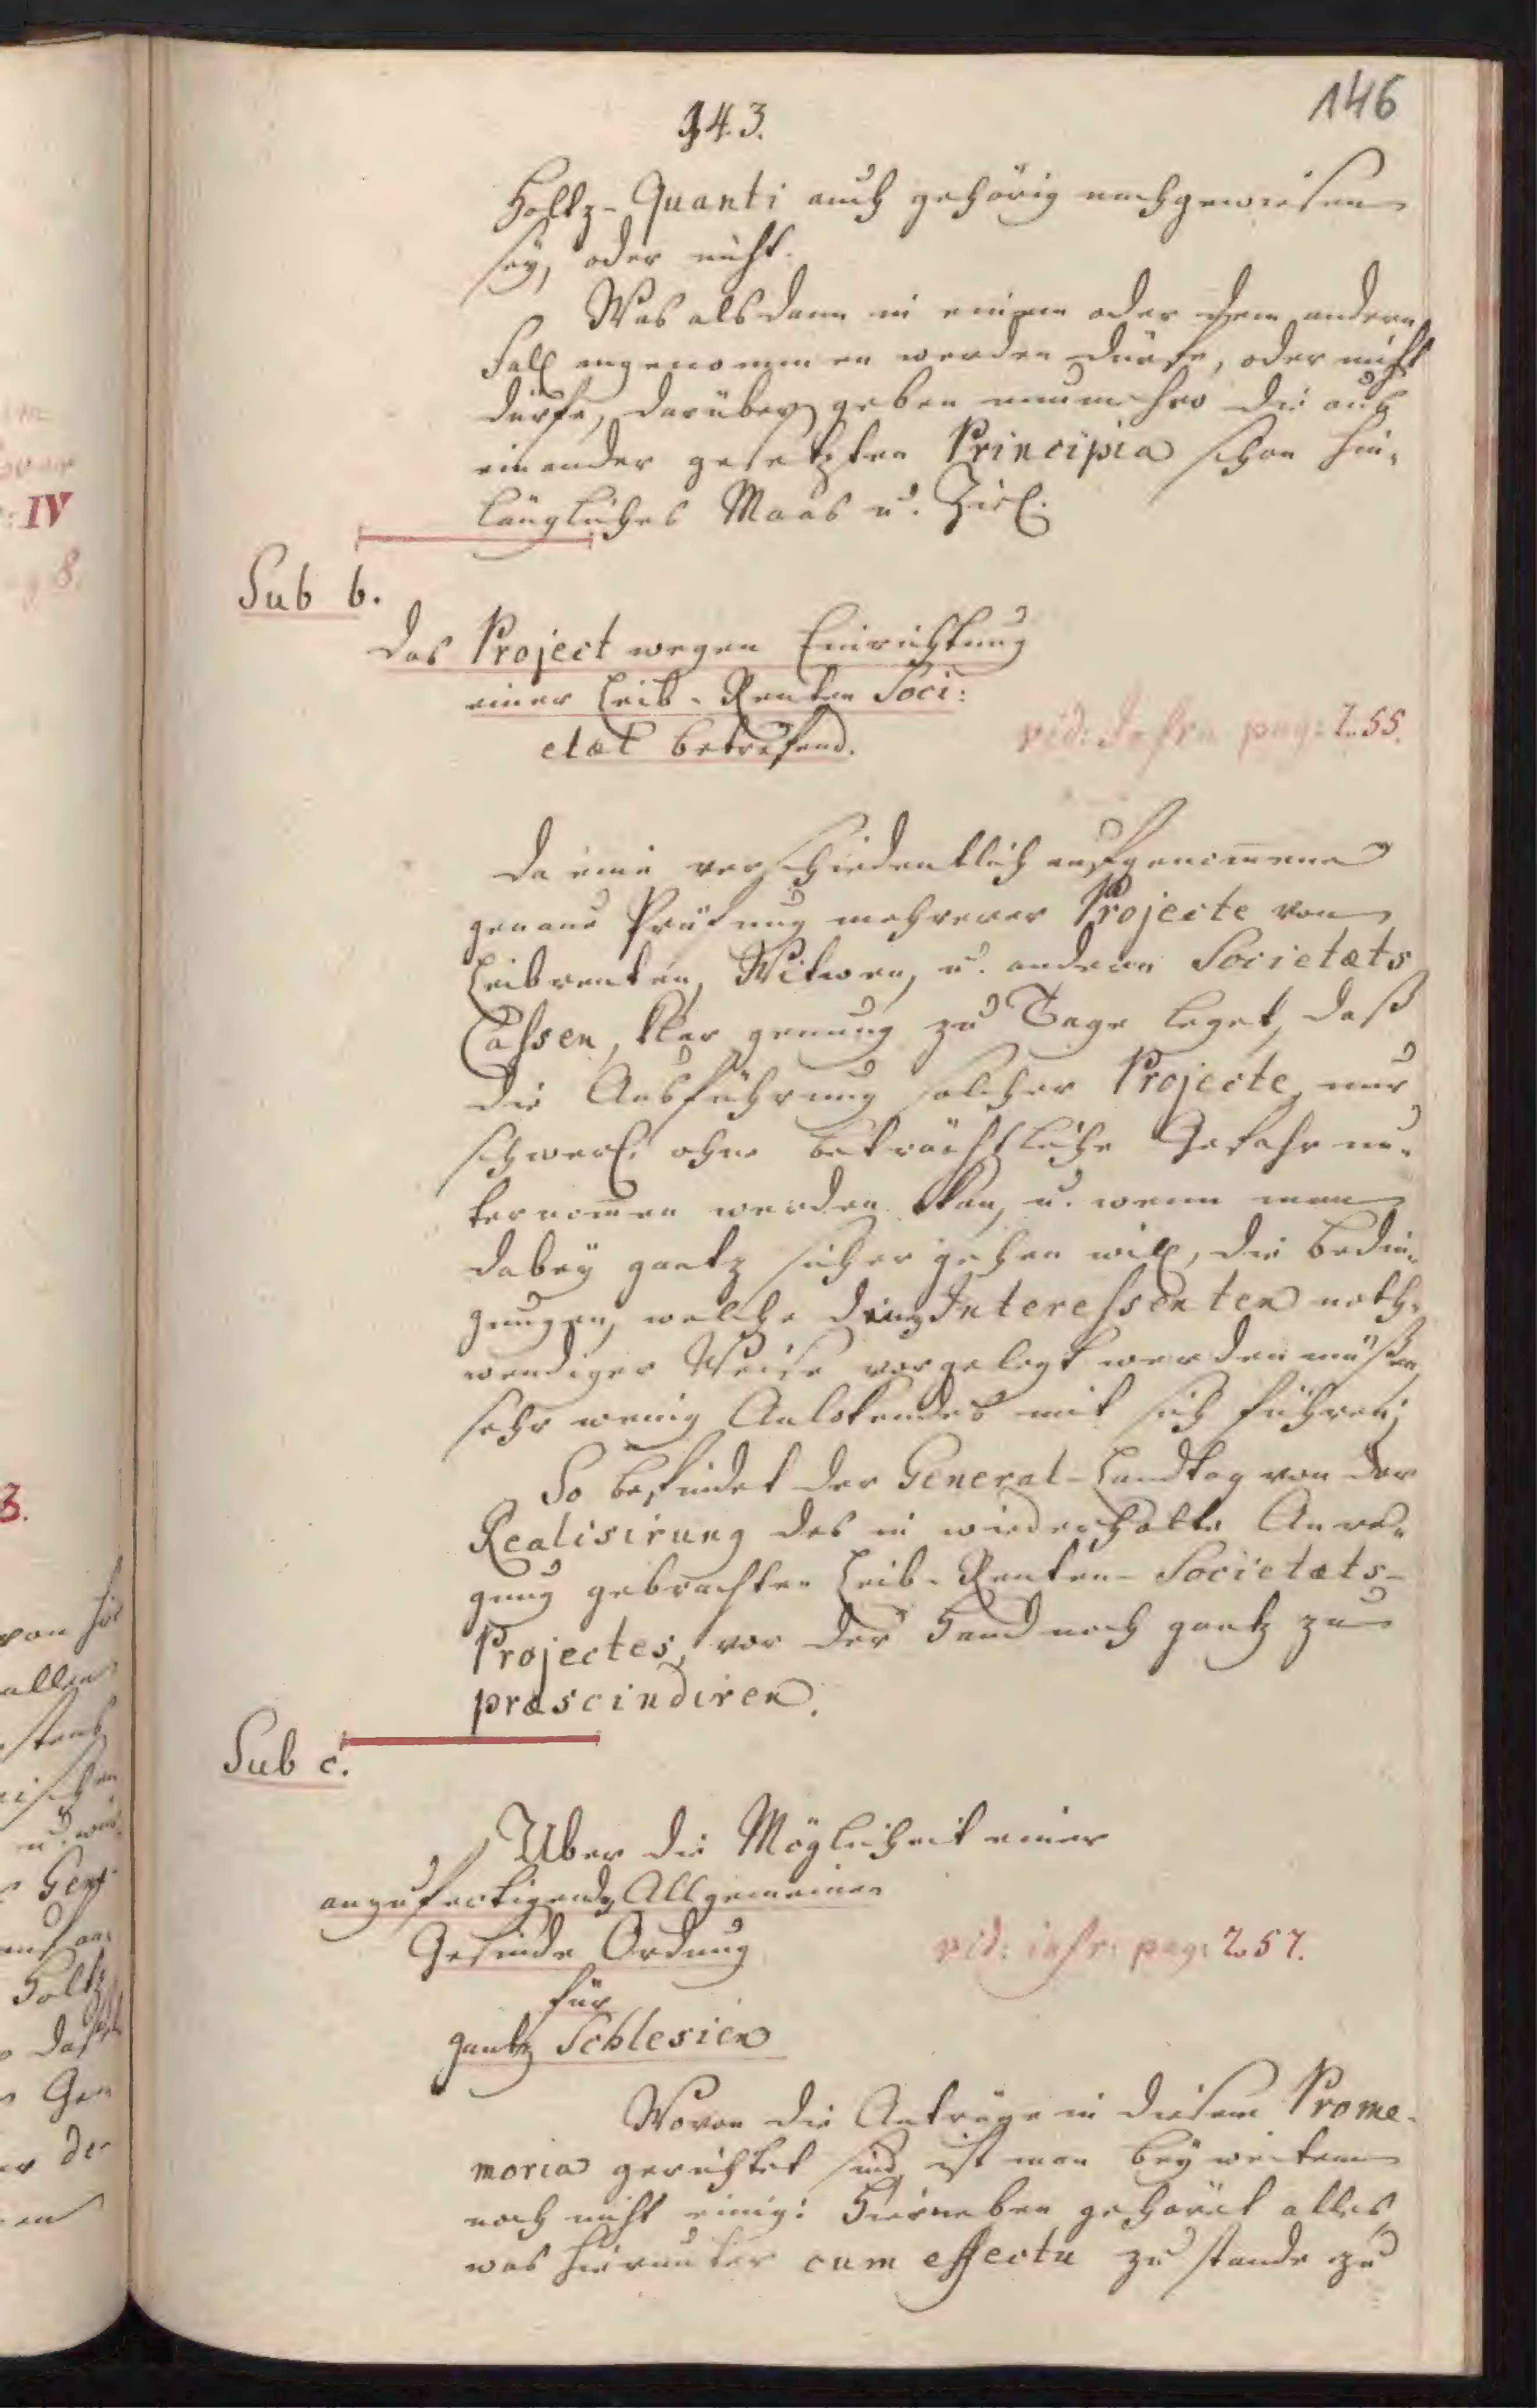 146
143.
Holtz-Quanti auch gehörig nachgewiesen
sey, oder nicht.
Was alsdann in einem oder dem andern
Fall angenommen werden dürfe, oder nicht
dürfe, darüber geben nunmehro die aus
einander gesetzten Principia schon hin-
längliches Maas u. Ziel.
Sub b.
Das Project wegen Einrichtung
einer Leib-Renten Soci:
etæt betrefend.
vid: Infra pag: 255.
Da eine verschiedentlich aufgenom̅ene
genaue Prüfung mehrerer Projecte von
Leibrenten, Witwen, u. andern Societæts
Cassen, klar genung zu Tage leget, daß
die Ausführung solcher Projecte, nur
schwerl. ohne beträchtliche Gefahr un-
ternom̅en werden kan, u. wenn man
dabey gantz sicher gehen will, die Bedin-
gungen, welche den Interessenten noth-
wendiger Weise vorgelegt werden müßen,
sehr wenig Anlokendes mit sich führen;
So befindet der General-Landtag von der
Realisirung des in wiederholte Anre-
gung gebrachten Leib-Renten-Societæts-
Projectes, vor der Hand noch gantz zu
præscindiren.
Sub c.
Über die Möglichkeit einer
anzufertigenden Allgemeinen
Gesinde Ordnung
für
gantz Schlesien
vid: infr: pag: 257.
Wovon die Anträge in diesem Prome-
moria gerichtet sind, ist man bey weitem
noch nicht einig: Hierneben gehöret alles,
was hierunter cum effectu zu stande zu